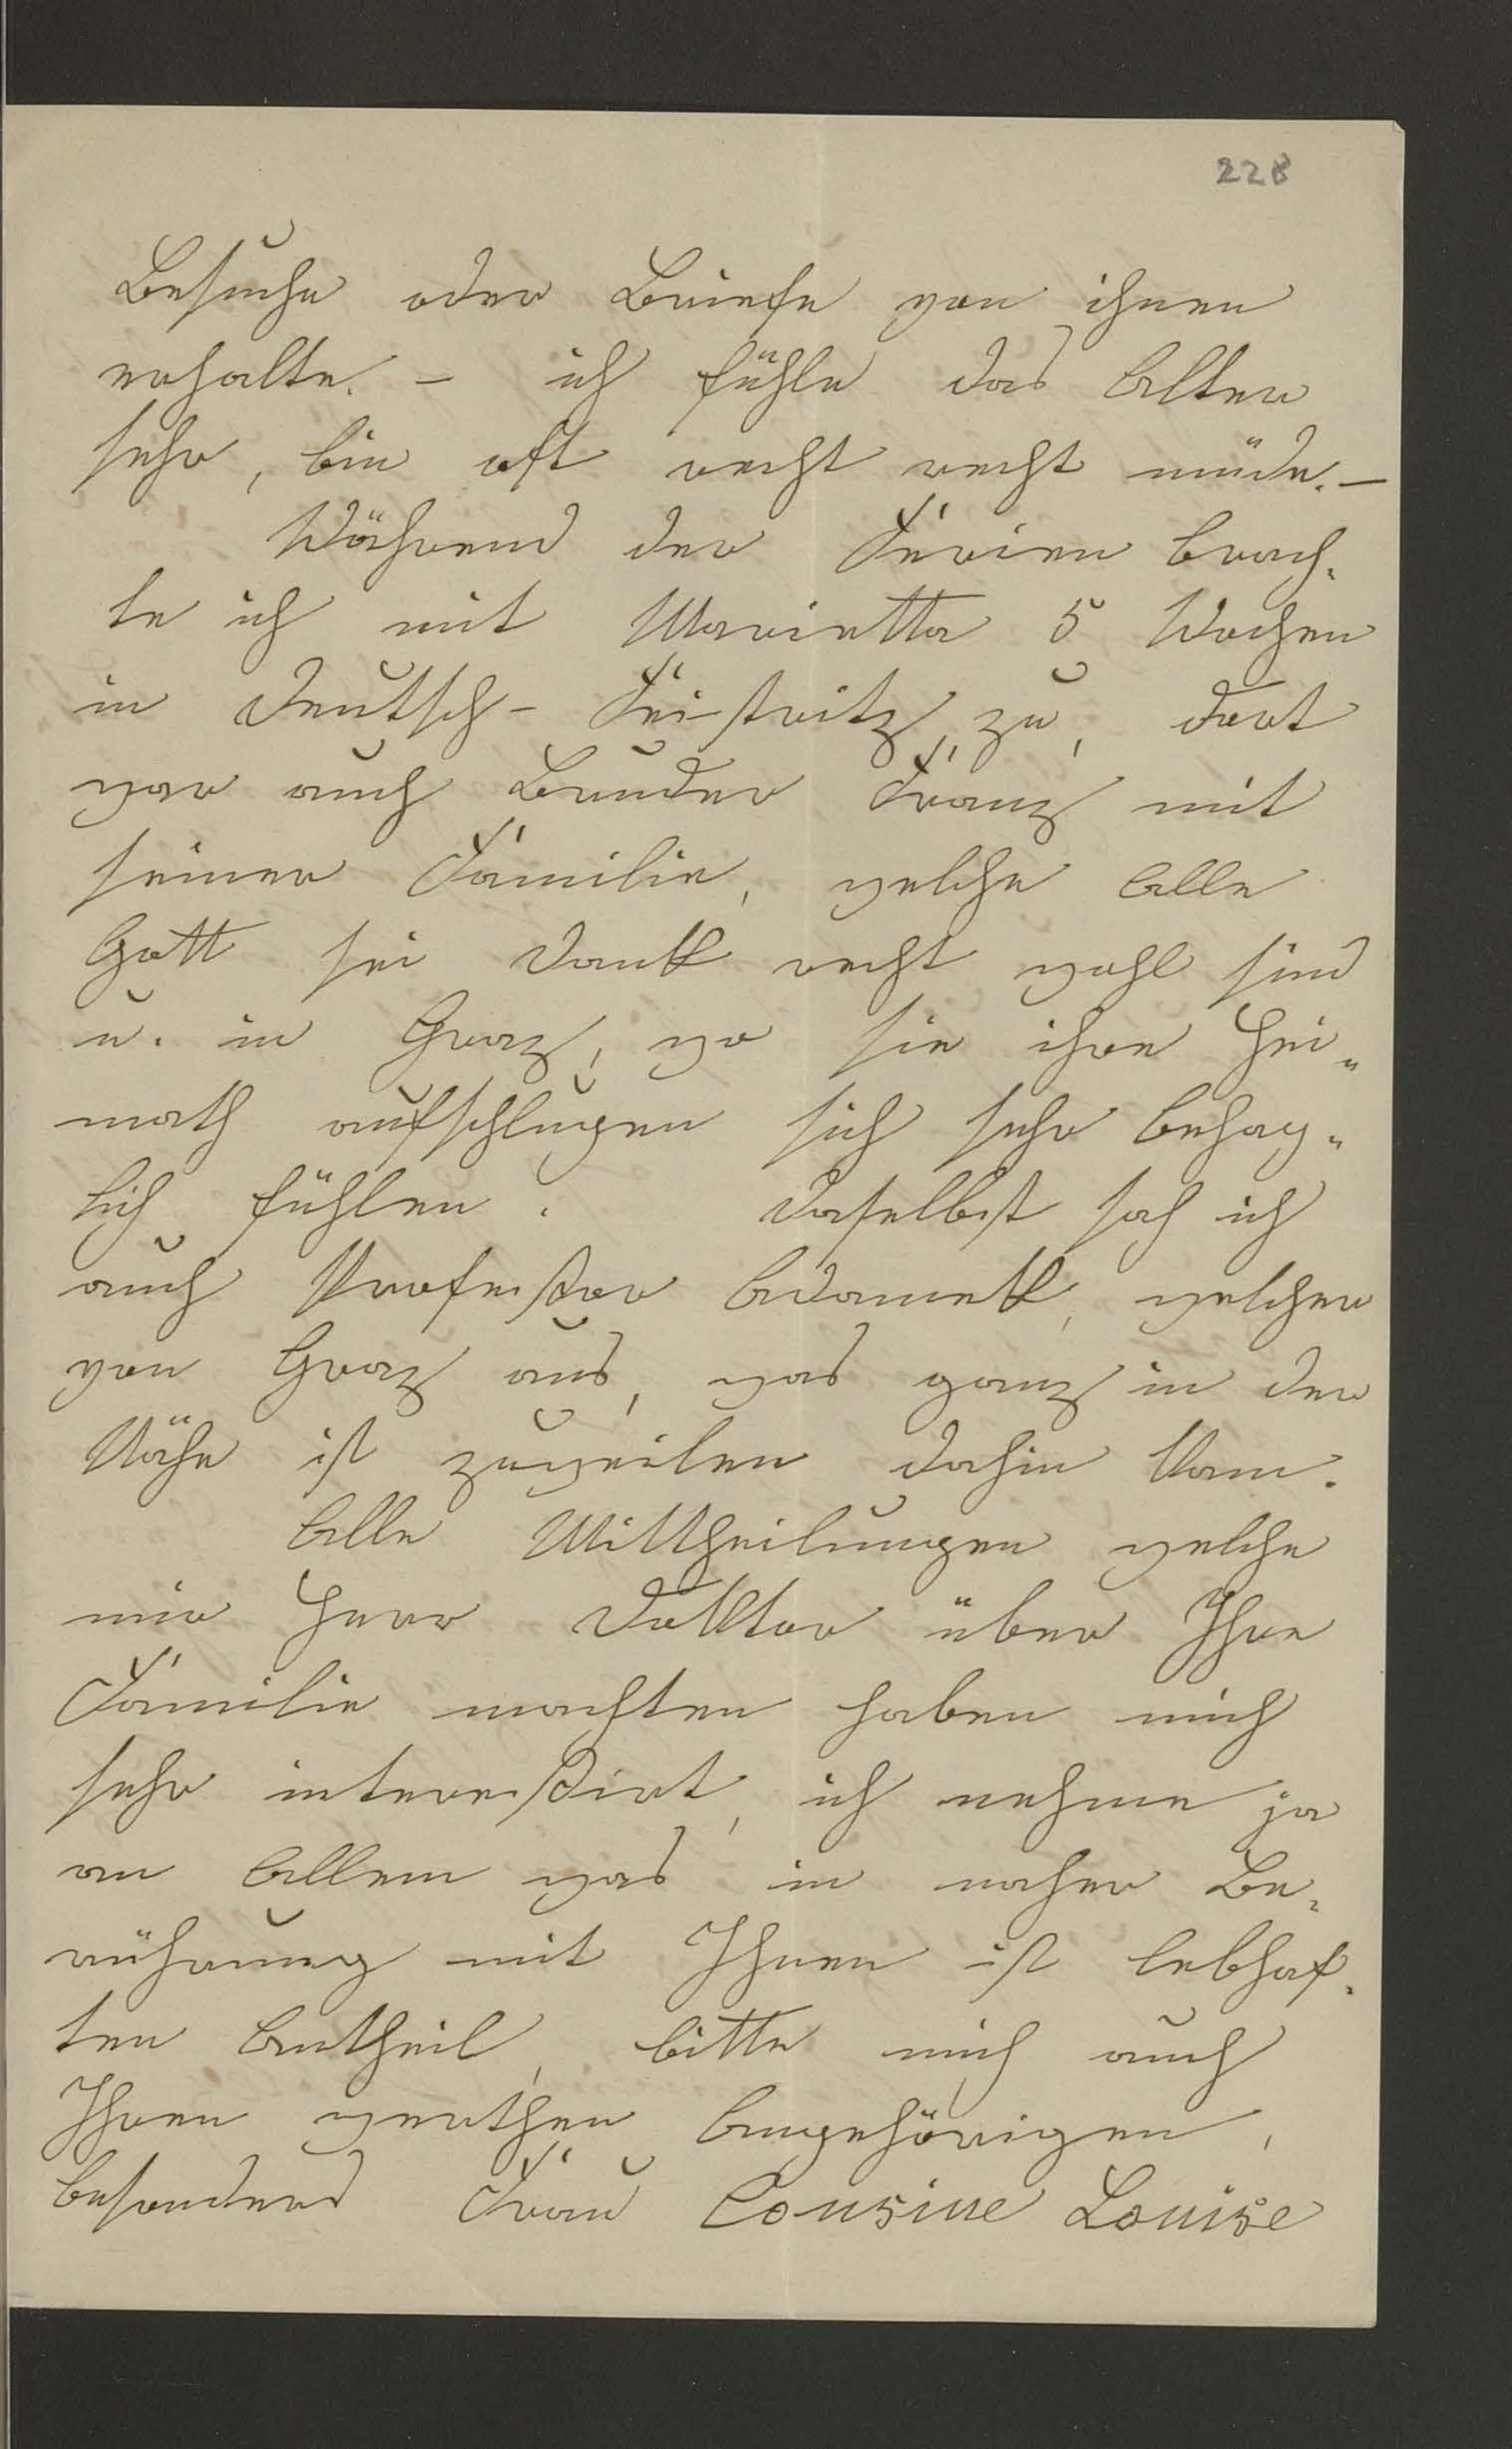 228
Besuche oder Briefe von ihnen
erhalte. – ich fühle das Alter
sehr, bin oft recht recht müde. –
Während der Ferien brach-
te ich mit Marietta 5 Wochen
in Deutsch-Feistritz zu, dort
war auch Bruder Franz mit
seiner Familie, welche Alle
Gott sei Dank recht wohl sind
u. in Graz, wo sie ihre Hei-
math aufschlugen sich sehr behag-
lich fühlen. Daselbst sah ich
auch Professor Adamek, welcher
von Graz aus, was ganz in der
Nähe ist zuweilen dahin kam.
Alle Mittheilungen welche
mir Herr Doktor über Ihre
Familie machten haben mich
sehr interessirt, ich nehme ja
an Allem was in naher Be-
rührung mit Ihnen ist lebhaf-
ten Antheil, bitte mich auch
Ihren werthen Angehörigen,
besonders Frau Cousine Louise